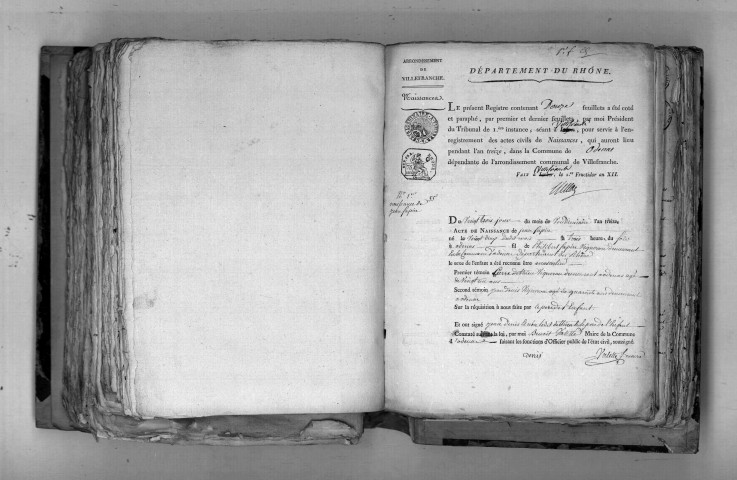 ARRONDISSEMENT
DE
VILLEFRANCHE.
Naissances.
DÉPARTEMENT DU RHÔNE.
LE présent Registre contenant Douze feuillets a été coté
et paraphé, par premier et dernier feuillets, par moi Président
du Tribunal de 1.ère instance, séant à Villefranche, pour servir à l'en-
registrement des actes civils de Naissances, qui auront lieu
pendant l'an treize, dans la Commune de Odenas
dépendante de l'arrondissement communal de Villefranche.
FAIT Villefranche, le 1.er Fructidor an XII.
N.º 1.er
naissance de
jean
DU vingt trois jour du mois de Vendémiaire l'an treize.
ACTE DE NAISSANCE de jean
né le vingt deux dudit mois à trois heures du soir
à odenas fil de Vigneron demeurant
en la Commune d'odenas département du Rhône
le sexe de l'enfant a été reconnu être masculin
Premier témoin pierre Vigneron demeurant à odenas agé
de vingt
Second témoin jean denis Vigneron agé de quarante ans demeurant
à odenas
Sur la réquisition à nous faite par le père de l'enfant
Et ont signé jean denis le père de l'enfant
Constaté suivant la loi, par moi Benoit Valette Maire de la Commune
d'odenas faisant les fonctions d'Officier public de l'état civil, soussigné.
Denis
Valette maire